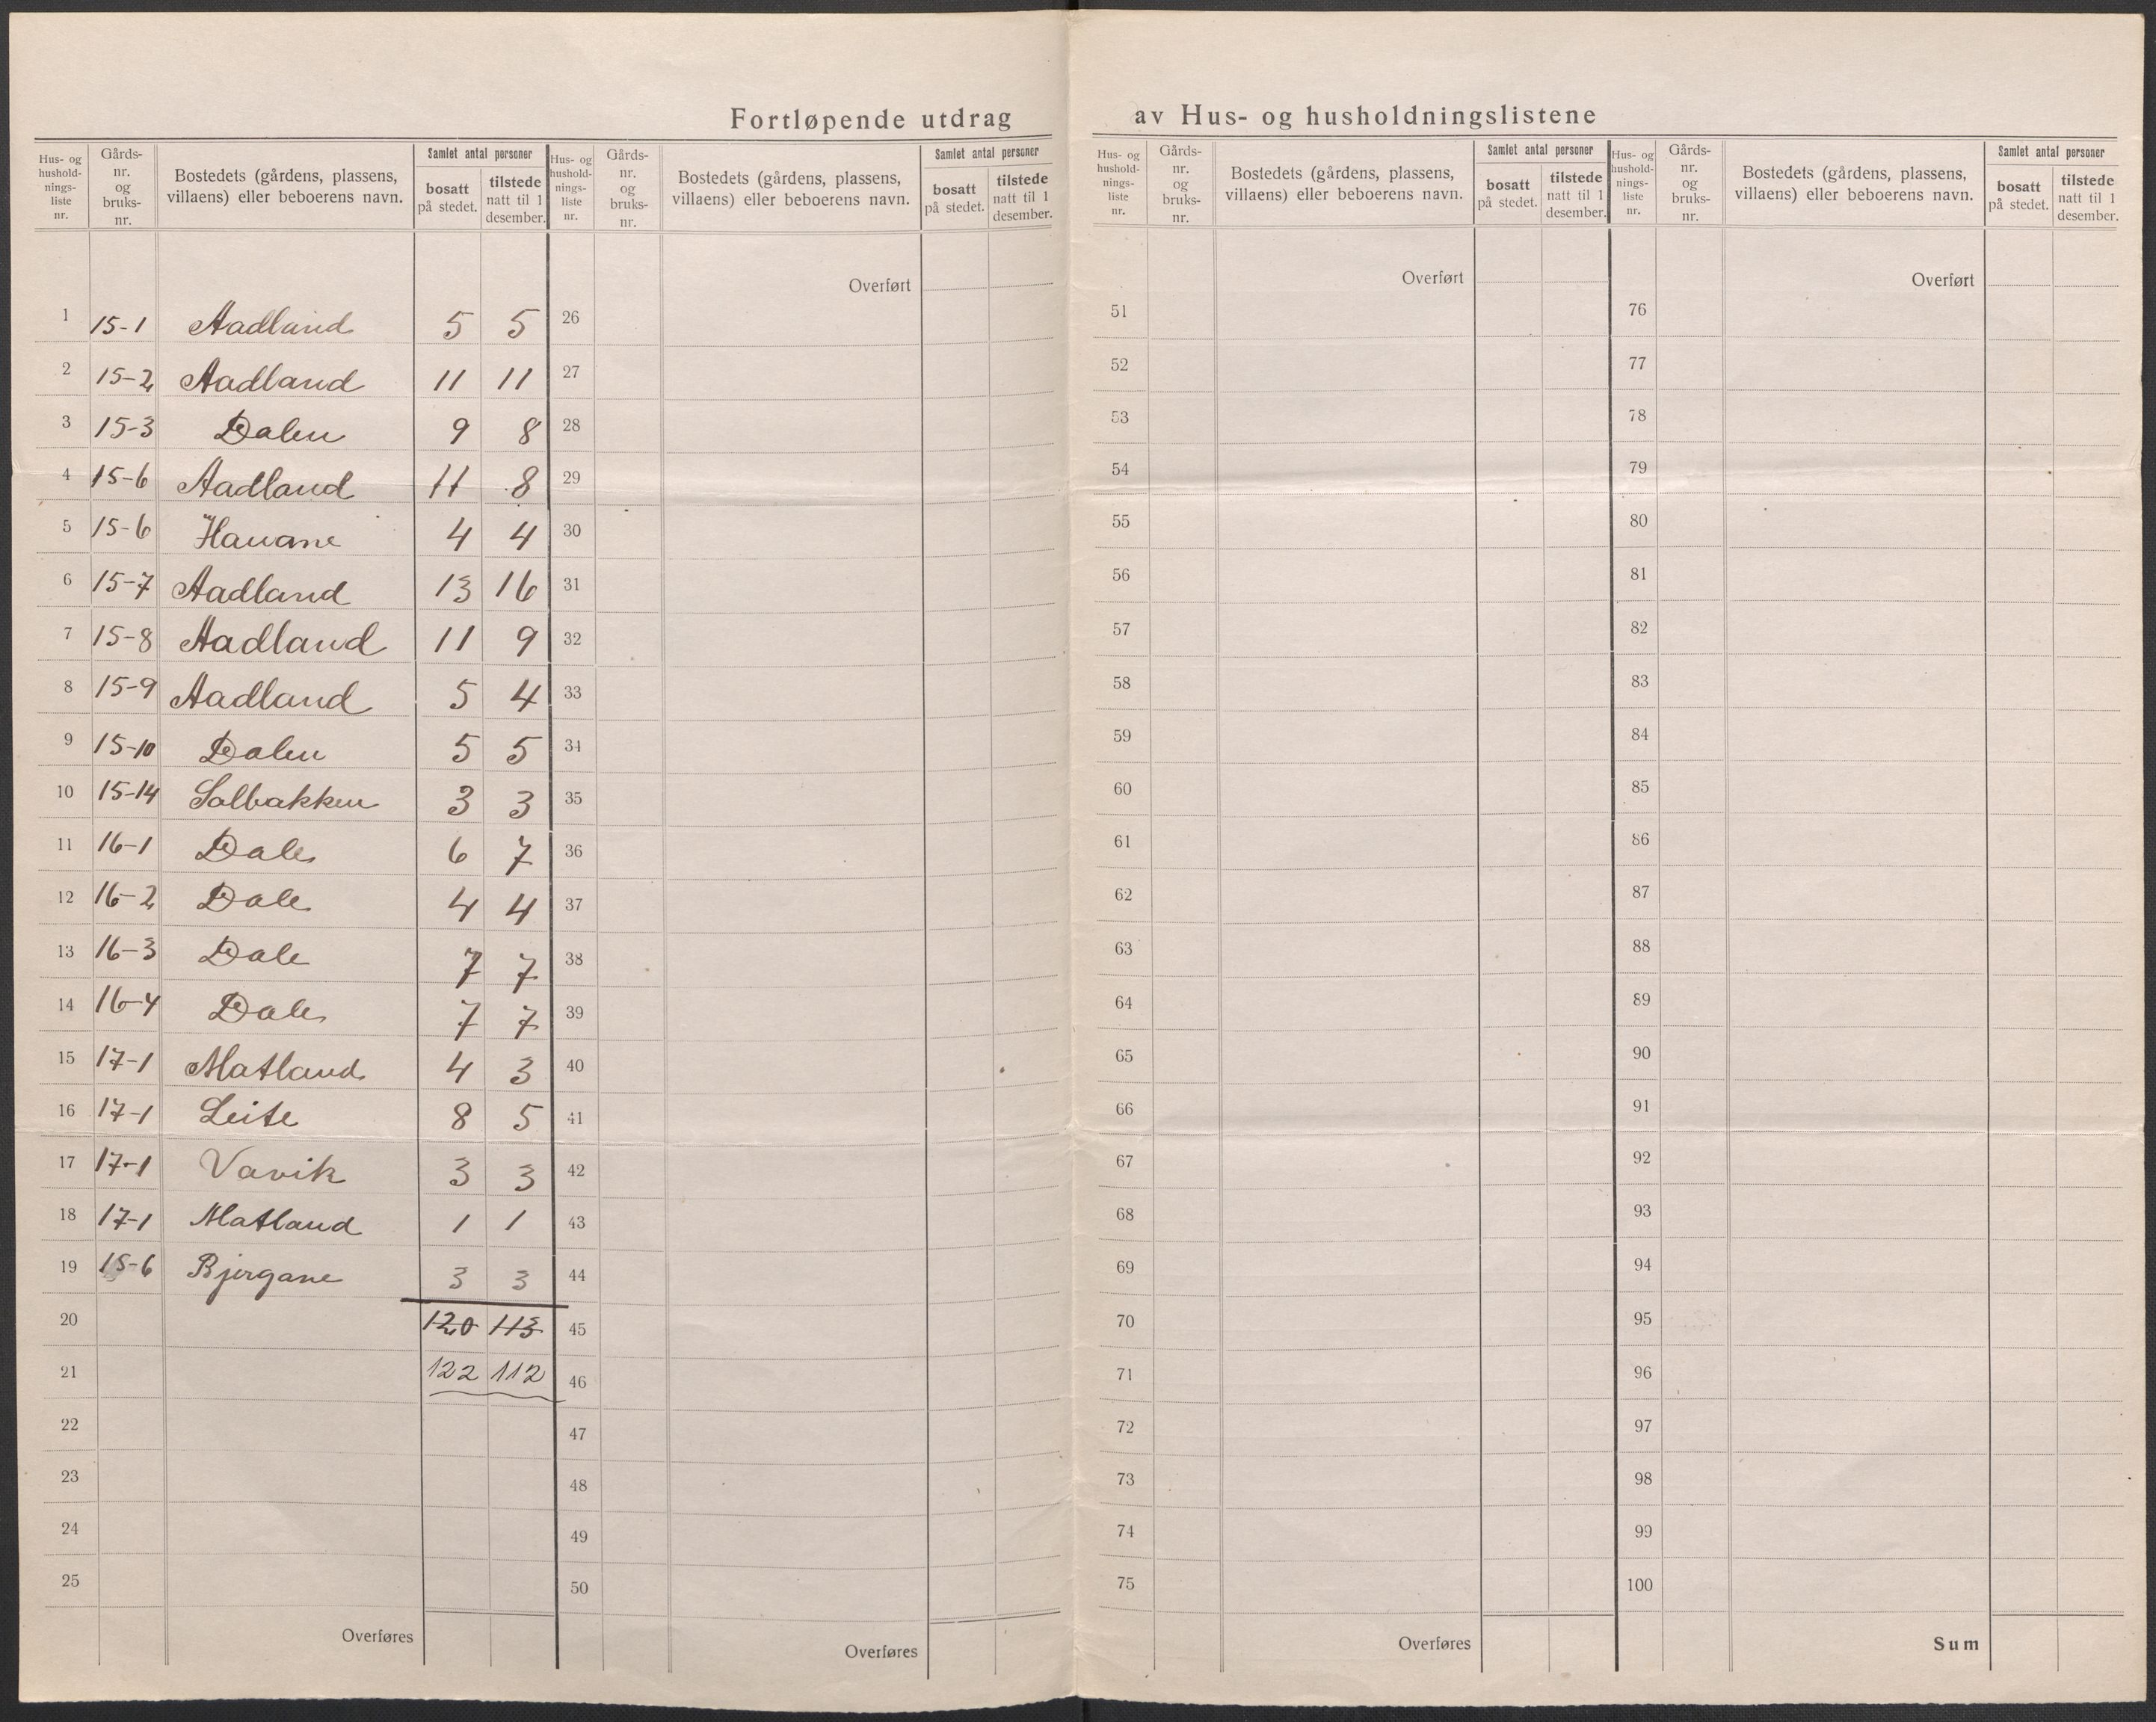 Fortløpende utdrag av Hus- og husholdningslistene
Hus- og hushold-nings-liste nr. Gårds-nr. og bruks-nr. Bostedets (gårdens, plassens, villaens) eller beboerens navn. Samlet antal personer bosatt på stedet. tilstede natt til 1 desember.
Hus- og hushold-nings-liste nr. Gårds-nr. og bruks-nr. Bostedets (gårdens, plassens, villaens) eller beboerens navn. Samlet antal personer bosatt på stedet. tilstede natt til 1 desember.
Hus- og hushold-nings-liste nr. Gårds-nr. og bruks-nr. Bostedets (gårdens, plassens, villaens) eller beboerens navn. Samlet antal personer bosatt på stedet. tilstede natt til 1 desember.
Hus- og hushold-nings-liste nr. Gårds-nr. og bruks-nr. Bostedets (gårdens, plassens, villaens) eller beboerens navn. Samlet antal personer bosatt på stedet. tilstede natt til 1 desember.
Overført Overført Overført
1 15-1 Aadland 5 5 26 51 76
2 15-2 Aadland 11 11 27 52 77
3 15-3 Dalen 9 8 28 53 78
4 15-6 Aadland 11 8 29 54 79
5 15-6 Hauane 4 4 30 55 80
6 15-7 Aadland 13 16 31 56 81
7 15-8 Aadland 11 9 32 57 82
8 15-9 Aadland 5 4 33 58 83
9 15-10 Dalen 5 5 34 59 84
10 15-14 Solbakken 3 3 35 60 85
11 16-1 Dale 6 7 36 61 86
12 16-2 Dale 4 4 37 62 87
13 16-3 Dale 7 7 38 63 88
14 16-4 Dale 7 7 39 64 89
15 17-1 Matland 4 3 40 65 90
16 17-1 Leite 8 5 41 66 91
17 17-1 Vavik 3 3 42 67 92
18 17-1 Matland 1 1 43 68 93
19 15-6 Bjergane 3 3 44 69 94
20 120 113 45 70 95
21 122 112 46 71 96
22 47 72 97
23 48 73 98
24 49 74 99
25 50 75 100
Overføres Overføres Overføres Sum